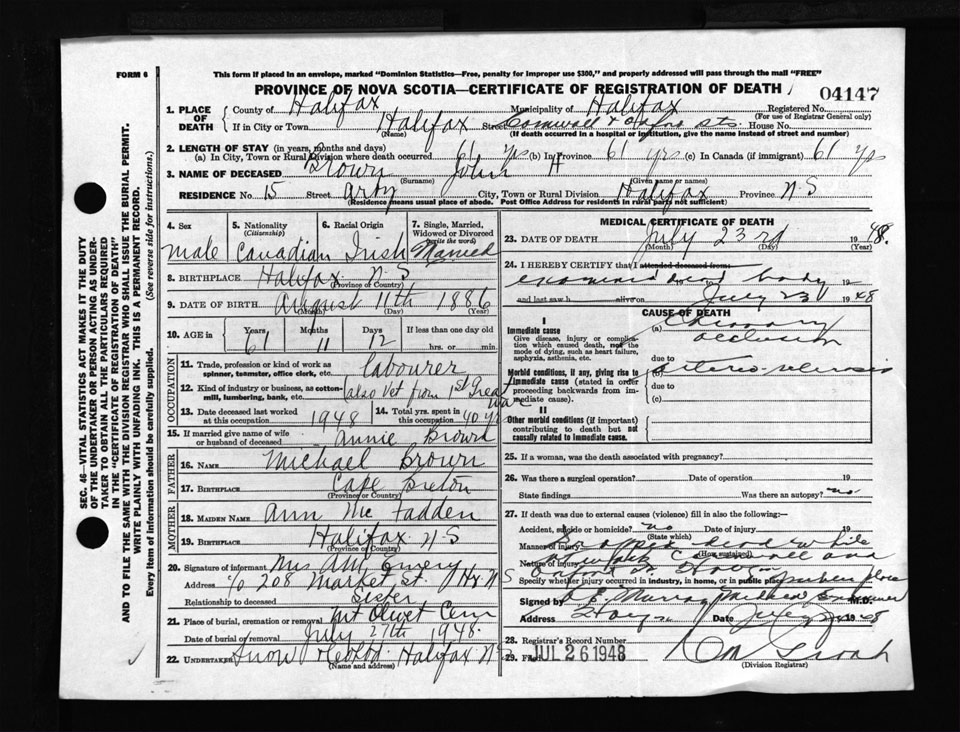 FORM 6
This form if placed in an envelope, marked "Dominion Statistics—Free, penalty for improper use $300," and properly addressed will pass through the mail "FREE"
PROVINCE OF NOVA SCOTIA—CERTIFICATE OF REGISTRATION OF DEATH
04147
1. PLACE OF DEATH
County of Halifax Municipality of Halifax Registered No.
(For use of Registrar General only)
If in City or Town Halifax Street Cornwall + Oxford Sts. House No.
(If death occurred in a hospital or institution, give the name instead of street and number)
2. LENGTH OF STAY (in years, months and days)
(a) In City, Town or Rural Division where death occurred 61 yrs (b) In Province 61 yrs (c) In Canada (if immigrant) 61 yrs
3. NAME OF DECEASED Brown John H
(Surname) (Given name or names)
RESIDENCE No. 15 Street City, Town or Rural Division Halifax Province N-S
(Residence means usual place of abode. Post Office Address for residents in rural parts not sufficient)
4. Sex
Male
5. Nationality
(Citizenship)
Canadian
6. Racial Origin
Irish
7. Single, Married, Widowed or Divorced
(write the word)
Married
8. BIRTHPLACE Halifax N-S
(Province or Country)
9. DATE OF BIRTH August 11th 1886
(Month) (Day) (Year)
10. AGE in
Years Months Days If less than one day old
61 11 12 hrs. or min.
OCCUPATION
11. Trade, profession or kind of work as spinner, teamster, office clerk, etc. Labourer
12. Kind of industry or business, as cotton-mill, lumbering, bank, etc. also Vet from 1st Great War
13. Date deceased last worked at this occupation 1948
14. Total yrs. spent in this occupation 40 yrs
15. If married give name of wife or husband of deceased Annie Brown
FATHER
16. NAME Michael Brown
17. BIRTHPLACE Cape Breton
(Province or Country)
MOTHER
18. MAIDEN NAME Ann McFadden
19. BIRTHPLACE Halifax N-S
(Province or Country)
20. Signature of informant Mrs Emery
Address c/o 208 Market St. Hx N S
Relationship to deceased Sister
21. Place of burial, cremation or removal Mt Olivet Cem
Date of burial or removal July 27th 1948.
22. UNDERTAKER Snow Halifax N-S
(Name and address)
MEDICAL CERTIFICATE OF DEATH
23. DATE OF DEATH July 23rd 1948.
(Month) (Day) (Year)
24. I HEREBY CERTIFY that I attended deceased from
examined dead body 19
and last saw h alive on July 23 1948
CAUSE OF DEATH
I
Immediate cause
Give disease, injury or complication which caused death, not the mode of dying, such as heart failure, asphyxia, asthenia, etc.
(a) Coronary occlusion
due to
Morbid conditions, if any, giving rise to immediate cause (stated in order proceeding backwards from immediate cause).
(b) arterio-sclerosis
due to
(c)
II
Other morbid conditions (if important) contributing to death but not causally related to immediate cause.
25. If a woman, was the death associated with pregnancy?
26. Was there a surgical operation? Date of operation 19
State findings Was there an autopsy? no.
27. If death was due to external causes (violence) fill in also the following:—
Accident, suicide or homicide? no Date of injury 19
(State which)
Manner of injury Dropped dead while
(How sustained)
Nature of injury at work Cornwall and
Oxford St.
Specify whether injury occurred in industry, in home, or in public place public place
Signed by Murray Medical Examiner M.D.
Address Date July 1948
28. Registrar's Record Number
29. Filed JUL 26 1948
(Division Registrar)
SEC. 46—VITAL STATISTICS ACT MAKES IT THE DUTY OF THE UNDERTAKER OR PERSON ACTING AS UNDERTAKER TO OBTAIN ALL THE PARTICULARS REQUIRED IN THE "CERTIFICATE OF REGISTRATION OF DEATH" AND TO FILE THE SAME WITH THE DIVISION REGISTRAR WHO SHALL ISSUE THE BURIAL PERMIT.
WRITE PLAINLY WITH UNFADING INK. THIS IS A PERMANENT RECORD.
Every item of information should be carefully supplied. (See reverse side for instructions.)